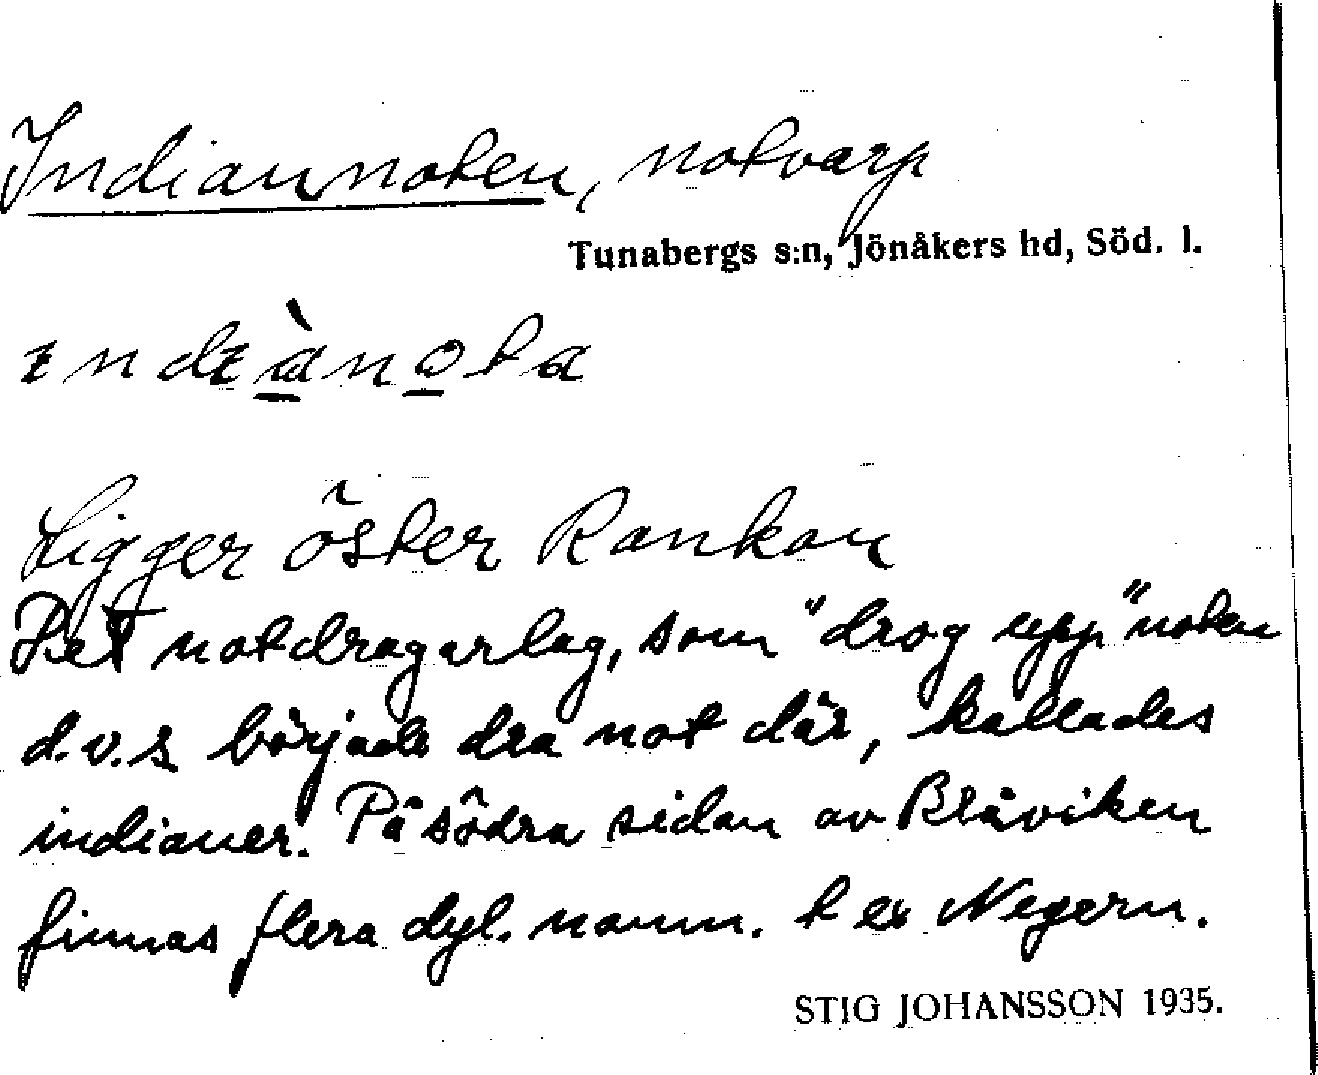 Indiannoten, notvarp
Tunabergs s:n, Jönåkers hd, Söd. l.
ındıànota
Ligger öster Rankan
Det notdragarlag, som "drog upp" noten
d.v.s. började dra not där, kallades
indianer. På södra sidan av Bråviken
finnas flera dyl. namn. t ex Negern.
STIG JOHANSSON 1935.